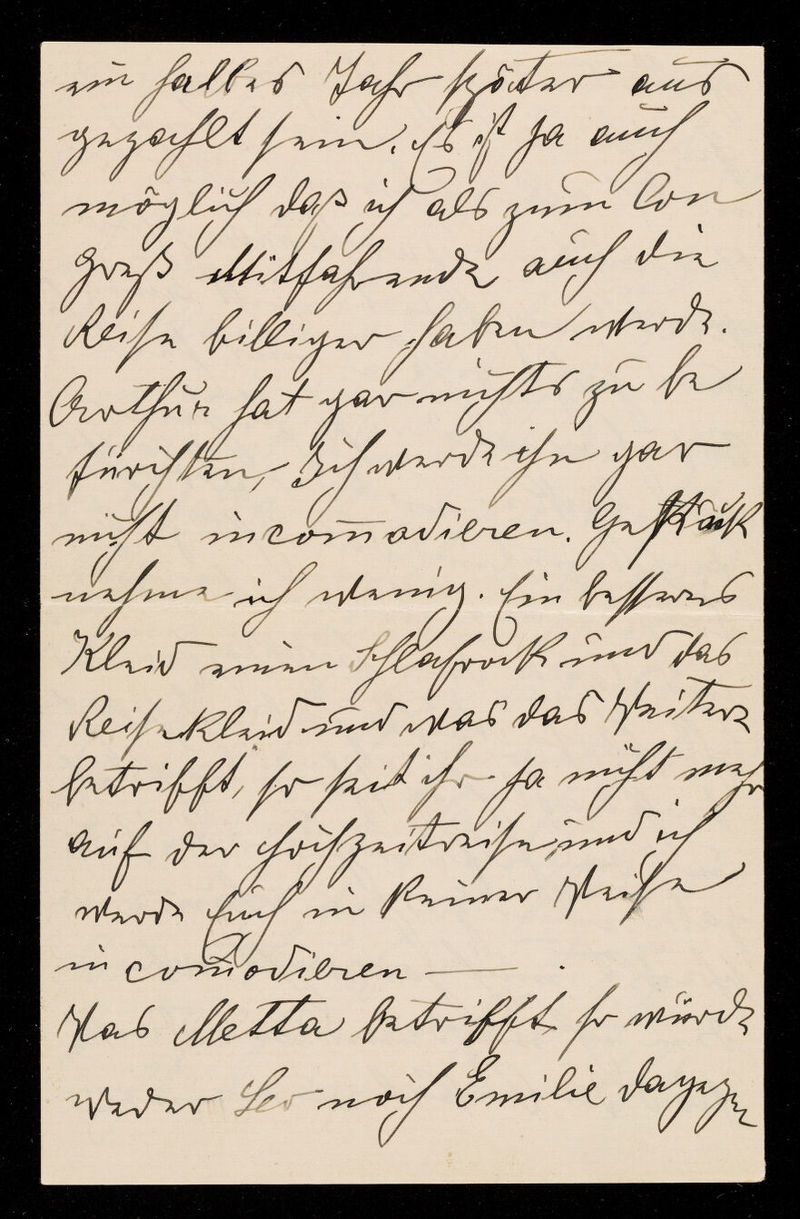 ein halbes Jahr später aus
gezahlt sein. Es ist ja auch
möglich daß ich als zum Con
greß Mitfahrende auch die
Reise billiger haben werde.
Arthur hat gar nichts zu be
fürchten, Ich werde ihn gar
nicht incommodieren. Gepäck
nehme ich wenig. Ein besseres
Kleid einen Schlafrock und das
Reisekleid und was das Weitere
betrifft, so seit ihr ja nicht mehr
auf der Hochzeitreise und ich
werde Euch in keiner Weise
incomodieren — .
Was Metta betrifft so würde
weder Leo noch Emilie dagegen